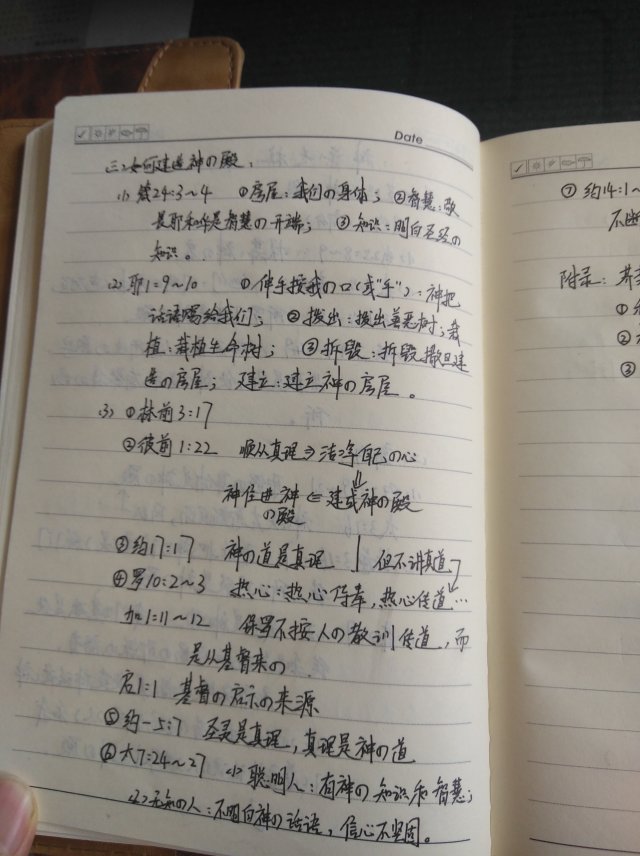 Date
三、如何建造神の殿.
(1) 箴24:3~4 ①房屋:我们の身体; ②智慧:敬
畏耶和华是智慧の开端; ③知识:明白圣经の
知识。
(2) 耶1:9~10 ①伸手按我の口(或"手"):神把
话语赐给我们; ②拨出:拨出善恶树;栽
植:栽植生命树; ③拆毁:拆毁撒旦建
造の房屋; 建立:建立神の房屋。
(3) ①林前3:17
②彼前1:22 顺从真理⇒洁净自己の心
⇓
神住进神⇐建成神の殿
の殿
③约17:17 神の道是真理 但不讲真道
④罗10:2~3 热心:热心侍奉,热心传道…
加1:11~12 保罗不按人の教训传道,而
是从基督来の.
启1:1 基督の启示の来源
⑤约一5:7 圣灵是真理,真理是神の道
⑥太7:24~27 (1) 聪明人:有神の知识和智慧;
(2)无知の人:不明白神の话语,信心不坚固。
⑦约14:1~
不断
附录:
①
②
③